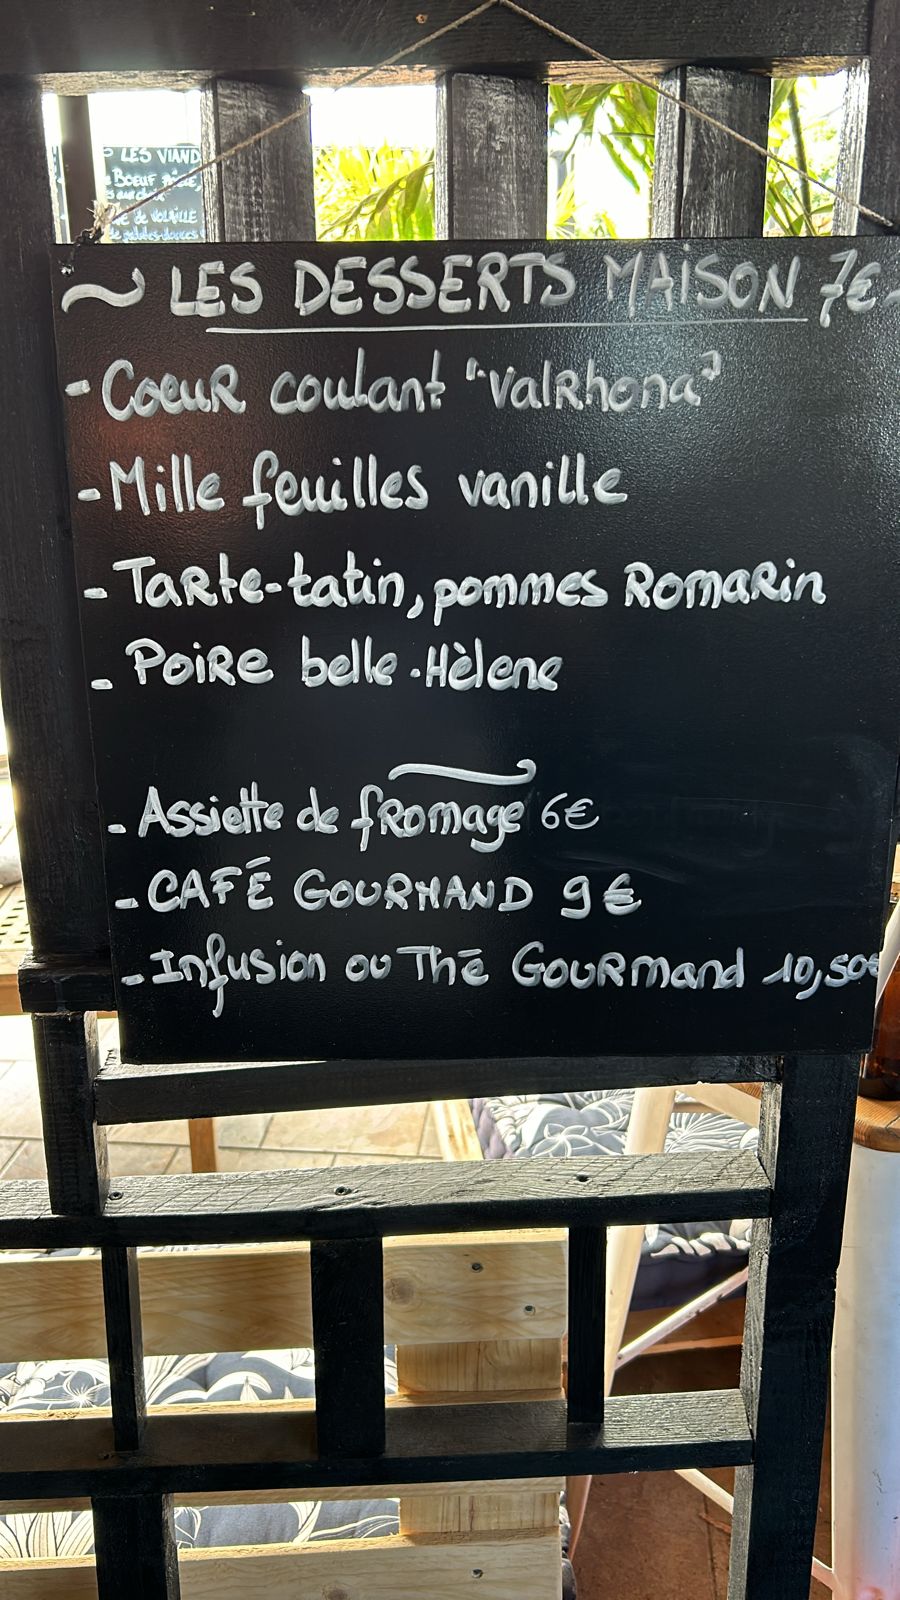 LES VIAND
BOEUF
de VOLAILLE
~ LES DESSERTS MAISON 7€ -
- Coeur coulant "Valrhona"
- Mille feuilles vanille
- Tarte-tatin, pommes Romarin
- Poire belle-Hèlene
- Assiette de fromage 6€
- CAFÉ GOURMAND 9€
- Infusion ou Thé Gourmand 10,50€